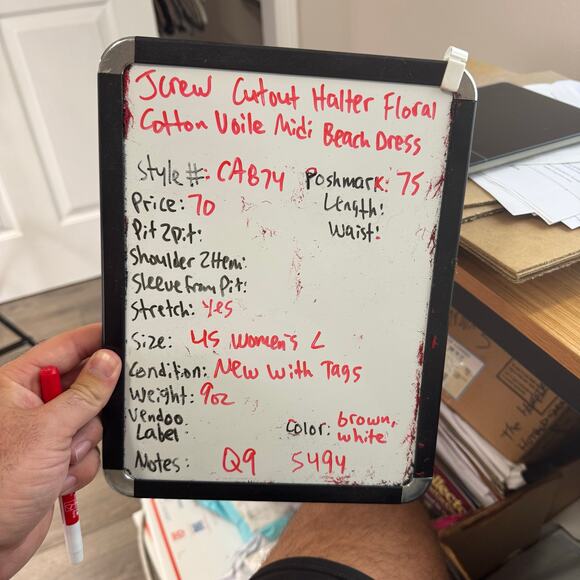 Jcrew Cutout Halter Floral
Cotton Voile Midi Beach Dress
Style #: CAB74 Poshmark: 75
Price: 70 Length:
Pit 2 Pit: Waist:
Shoulder 2 Hem:
Sleeve From Pit:
Stretch: Yes
Size: US Women's L
Condition: New With Tags
Weight: 9oz
Vendoo
Label Color: brown, white
Notes: Q9 5494